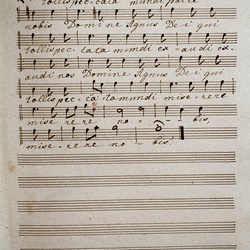 tollis pec-cata mundi parce
nobis Domine Agnus De-i qui
tollis pec-cata mundi ex-audi ex-
audi nos Domine Agnus De-i qui
tollis pec-ca-ta mundi mise-rere
mise-re re no-bis,
mise-re-re no-bis.